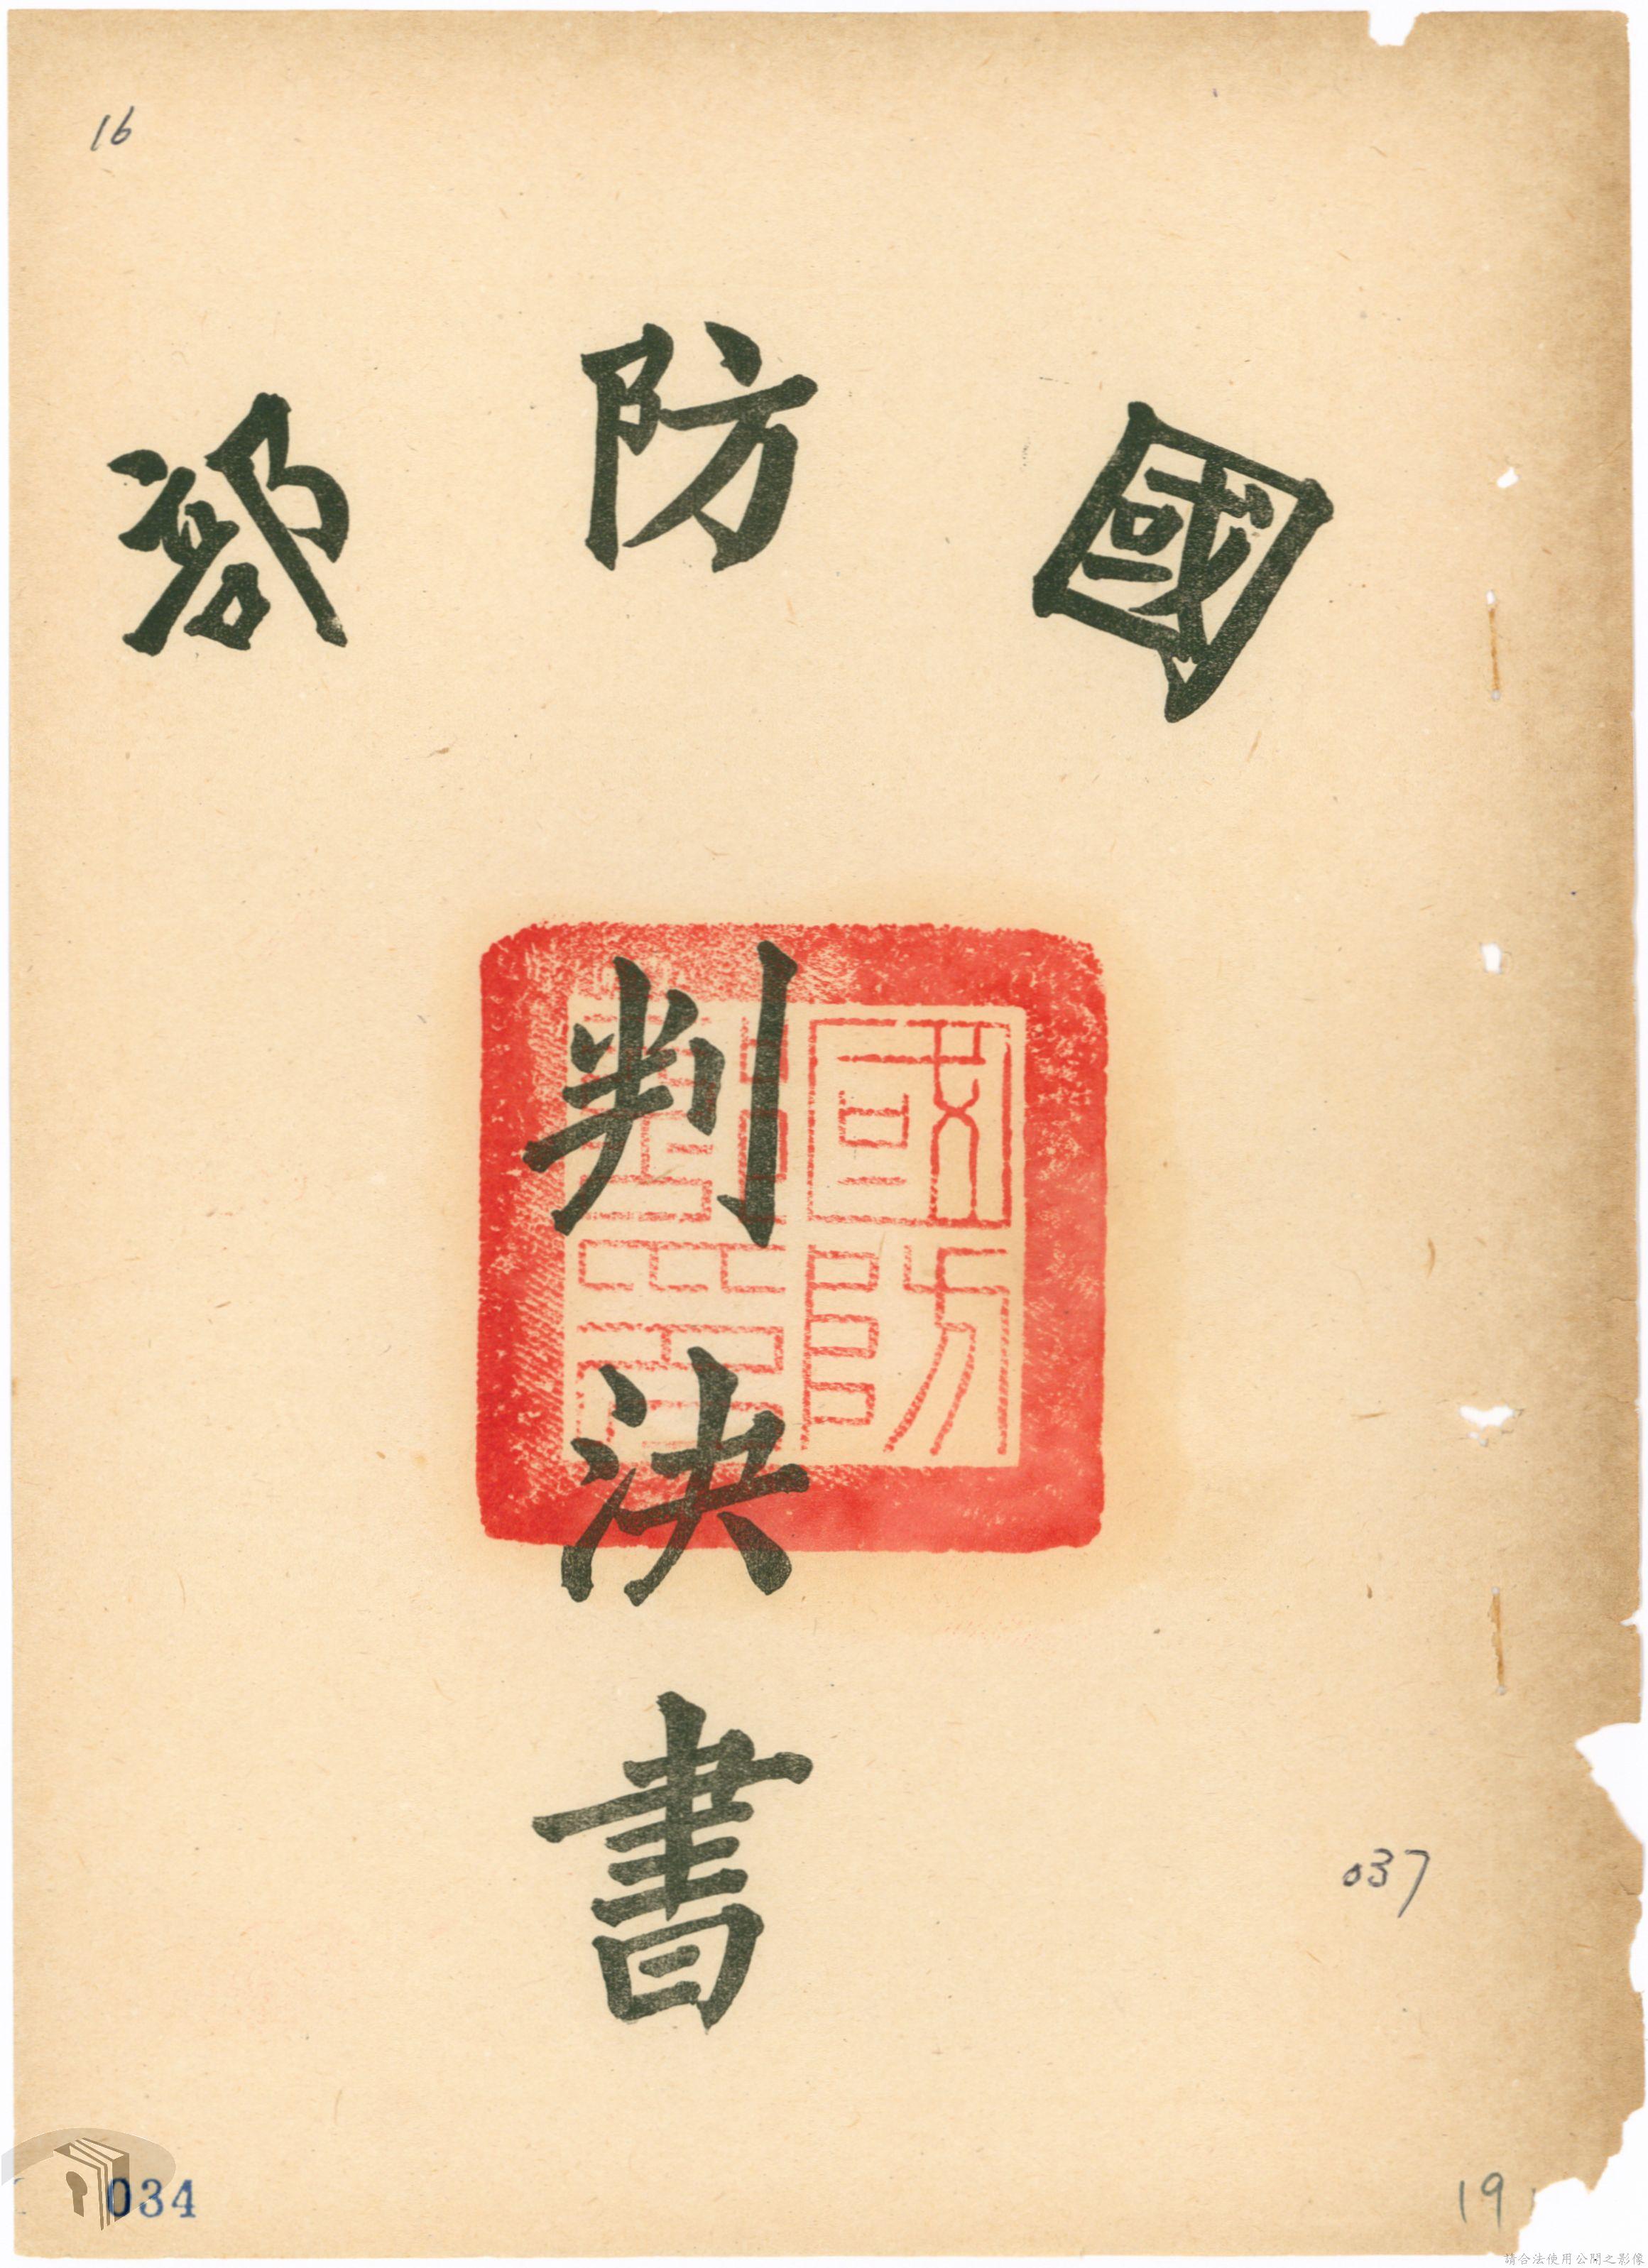 16
國防部
判決書
國防
部印
037
034
19
請合法使用公開之影像